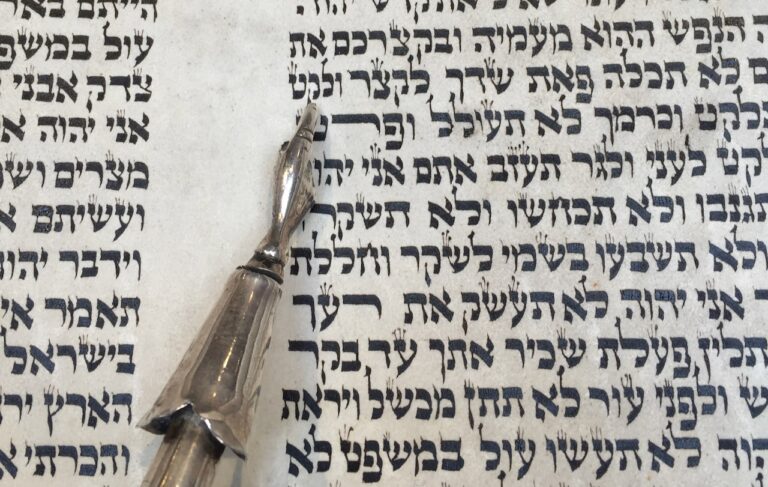 קדש יהוה חלל
הנפש ההוא מעמיה ובקצרכם את
לא תכלה פאת שדך לקצר ולקט
וכרמך לא תעולל
לעני ולגר תעזב אתם אני
תגנבו ולא תכחשו ולא
ולא תשבעו בשמי לשקר וחללת
אני יהוה לא תעשק את רעך
תלין פעלת שכיר אתך עד בקר
ולפני עור לא תתן מכשל ויראת
לא תעשו עול במשפט לא
הייתם
עול
צדק אבני
אני יהוה
מצרים
ועשיתם
וידבר
תאמר
בישראל
הארץ
והכרתי